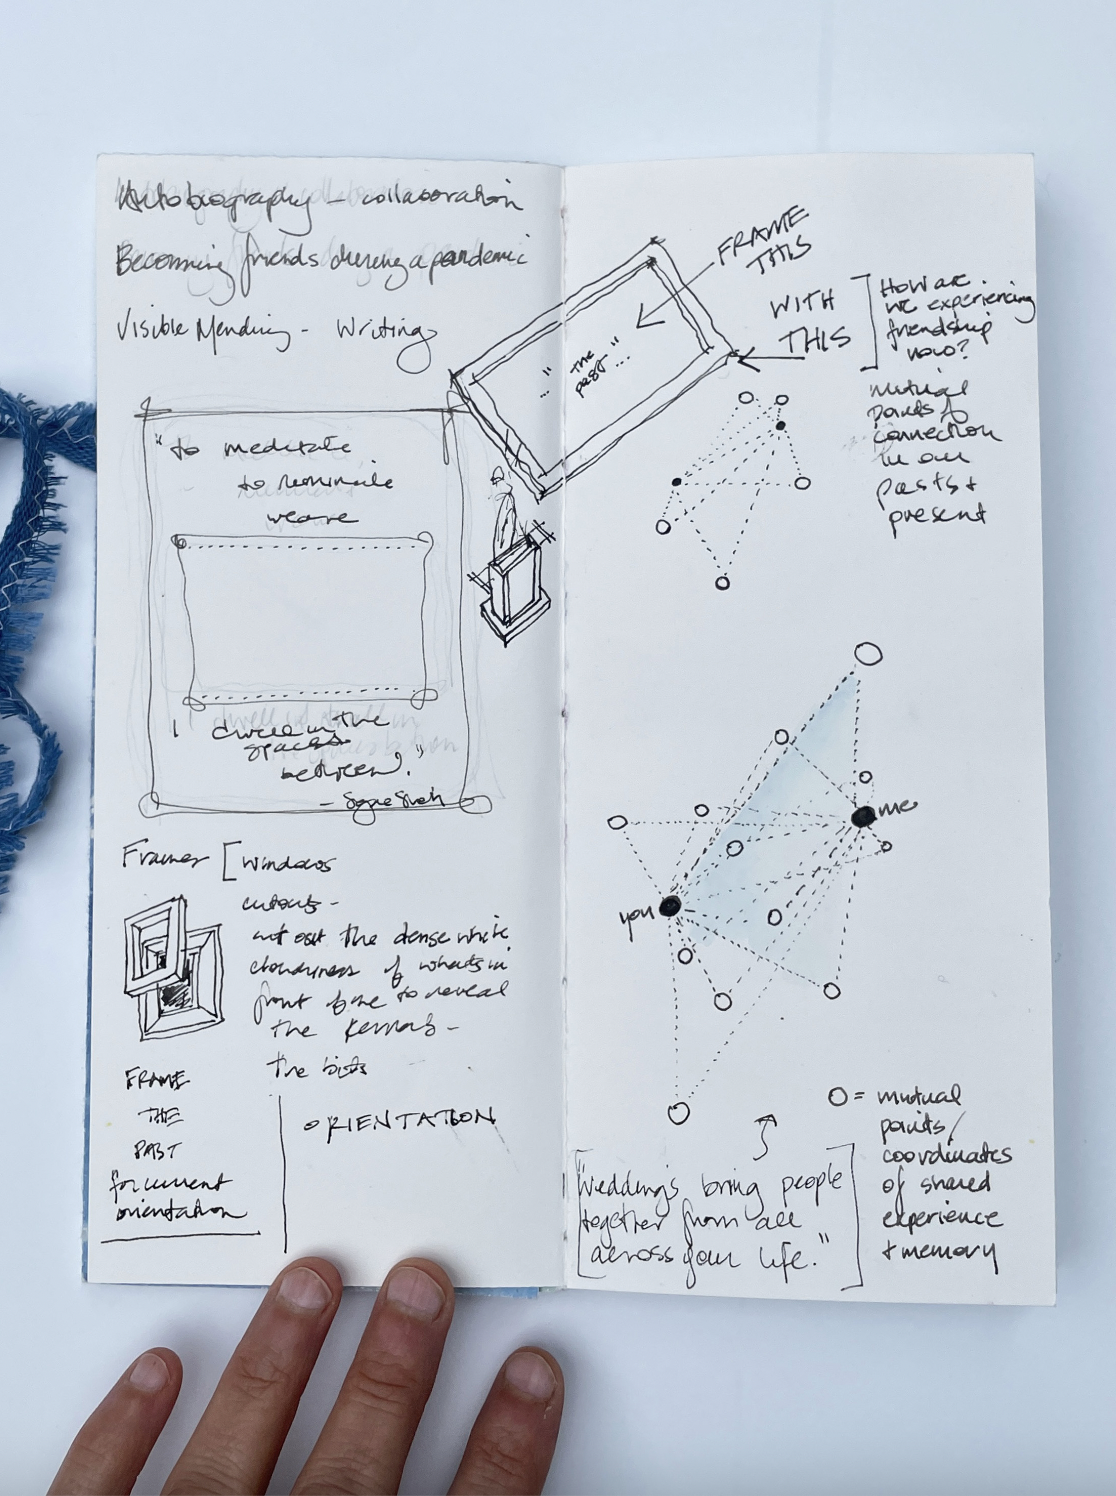 Autobiography - collaboration
Becoming friends during a pandemic
Visible Mending - Writing
"to meditate
to ruminate
weave
I dwell in the
spaces
between."
Frames [windows
cutouts -
cut out the dense white
cloudiness of what's in
front of me to reveal
the
the bits
FRAME
THE
PAST
for current
orientation
ORIENTATION
FRAME
THIS
WITH
THIS
... "the
past" ...
How are
we experiencing
friendship
now?
mutual
points of
connection
in our
pasts +
present
me
you
O = mutual
points/
coordinates
of shared
experience
+ memory
["Weddings bring people
together from all
across your life."]